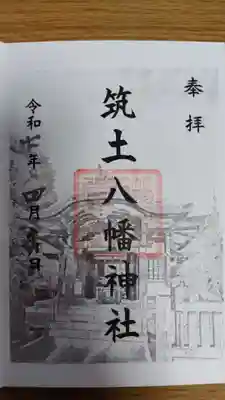 奉拝
筑土八幡神社
令和七年 四月 日